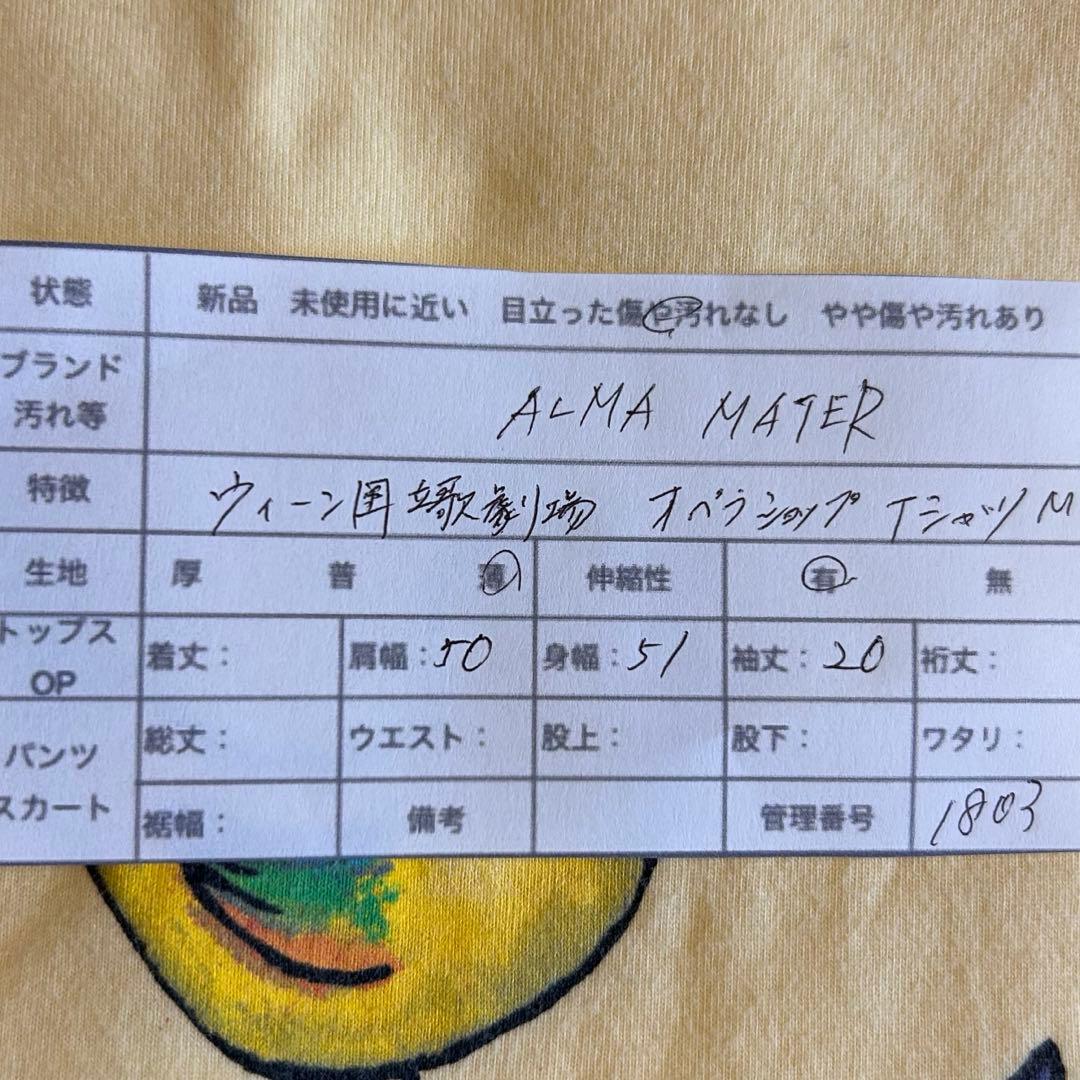 状態 新品 未使用に近い 目立った傷や汚れなし やや傷や汚れあり
ブランド
汚れ等 ALMA MATER
特徴 ウィーン国立歌劇場 オペラショップ Tシャツ M
生地 厚 普 薄 伸縮性 有 無
トップス
OP 着丈: 肩幅:50 身幅:51 袖丈:20 裄丈:
パンツ
スカート 総丈: ウエスト: 股上: 股下: ワタリ:
裾幅: 備考 管理番号 1803